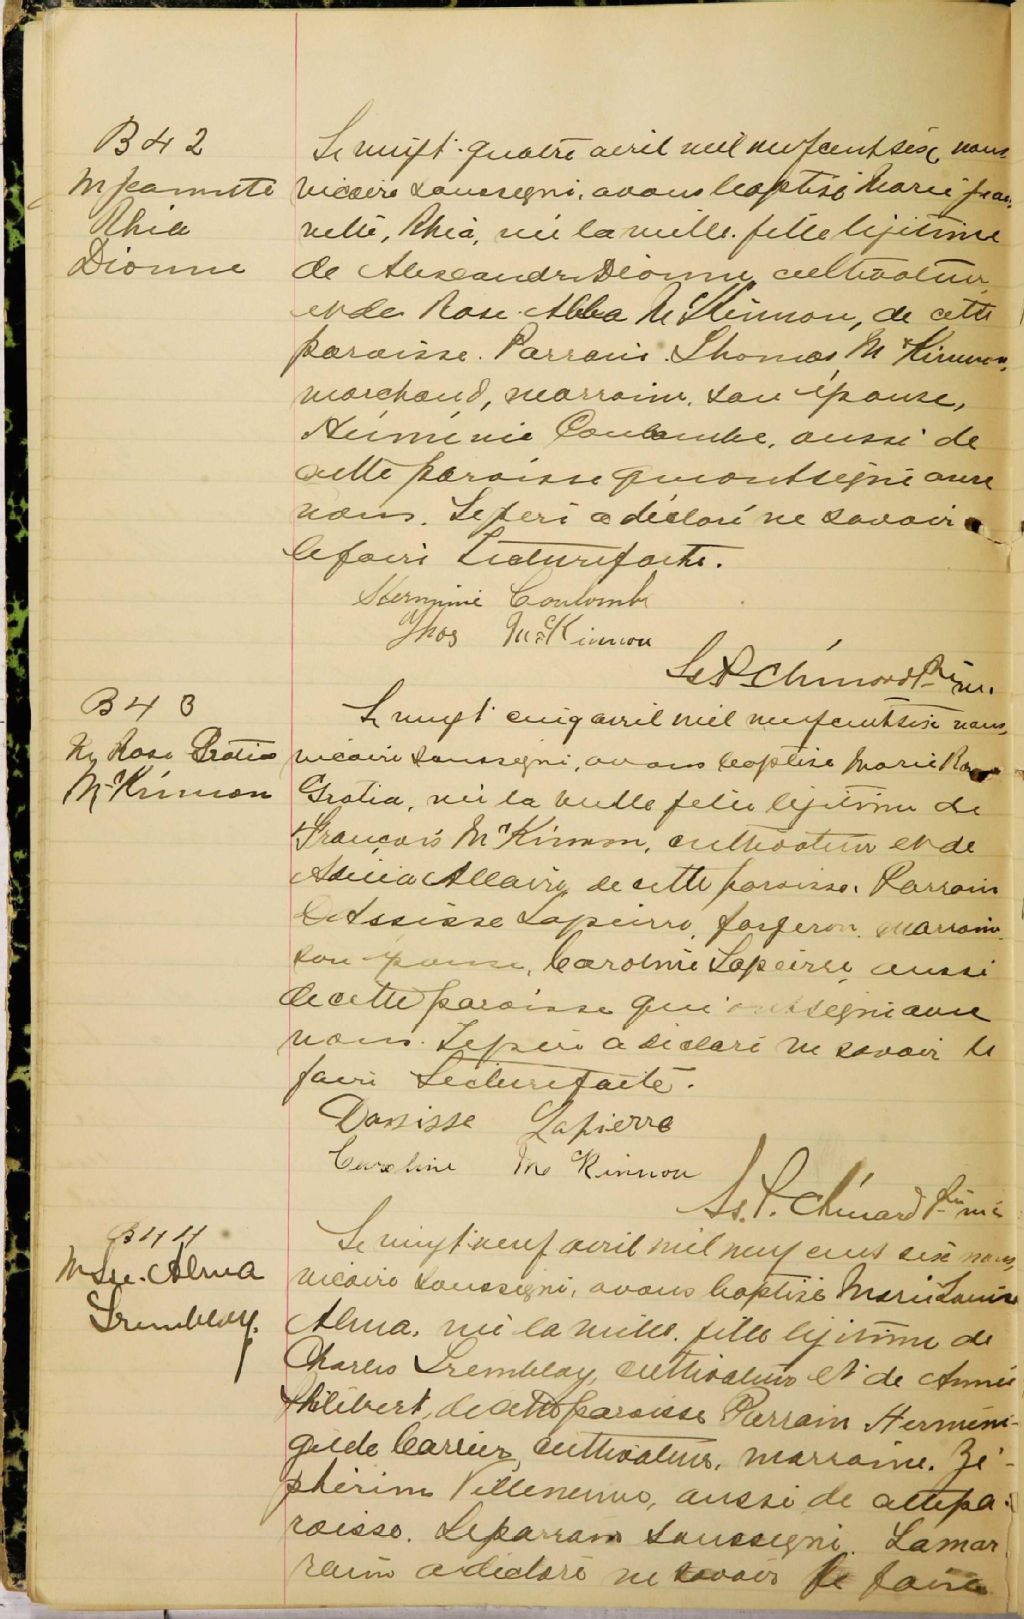 B 42
M Jeannette
Rhéa
Dionne
Le vingt-quatre avril mil neuf cent six, nous
vicaire soussigné, avons baptisé Marie Jean-
nette, Rhéa, née la veille, fille légitime
de Alexandre Dionne, cultivateur,
et de Rose-Alba McKinnon, de cette
paroisse. Parrain Thomas McKinnon,
marchand, marraine, son épouse,
Herménie Coulombe, aussi de
cette paroisse qui ont signé avec
nous. Le père a déclaré ne savoir
le faire Lecture faite.
Hermine Coulombe
Thos McKinnon
Ls P. Chinard Ptre vic.
B 43
M Rose Gratia
McKinnon
Le vingt cinq avril mil neuf cent six nous,
vicaire soussigné, avons baptisé Marie Rose
Gratia, née la veille fille légitime de
François McKinnon, cultivateur et de
Allaire, de cette paroisse. Parrain
Dassisse Lapierre, forgeron, marraine
son épouse, Caroline Lapierre, aussi
de cette paroisse qui ont signé avec
nous. Le père a déclaré ne savoir le
faire Lecture faite.
Dassisse Lapierre
Caroline McKinnon
Ls. P. Chinard Ptre vic
B 44
M Lse. Alma
Tremblay.
Le vingt neuf avril mil neuf cent six nous,
vicaire soussigné, avons baptisé Marie Louise
Alma, née la veille, fille légitime de
Charles Tremblay, cultivateur et de Annie
Philibert, de cette paroisse Parrain Herméni-
gilde Carrier, cultivateur, marraine, Zé-
phirine Villeneuve, aussi de cette pa-
roisse. Le parrain soussigné. La mar
raine a déclaré ne savoir le faire